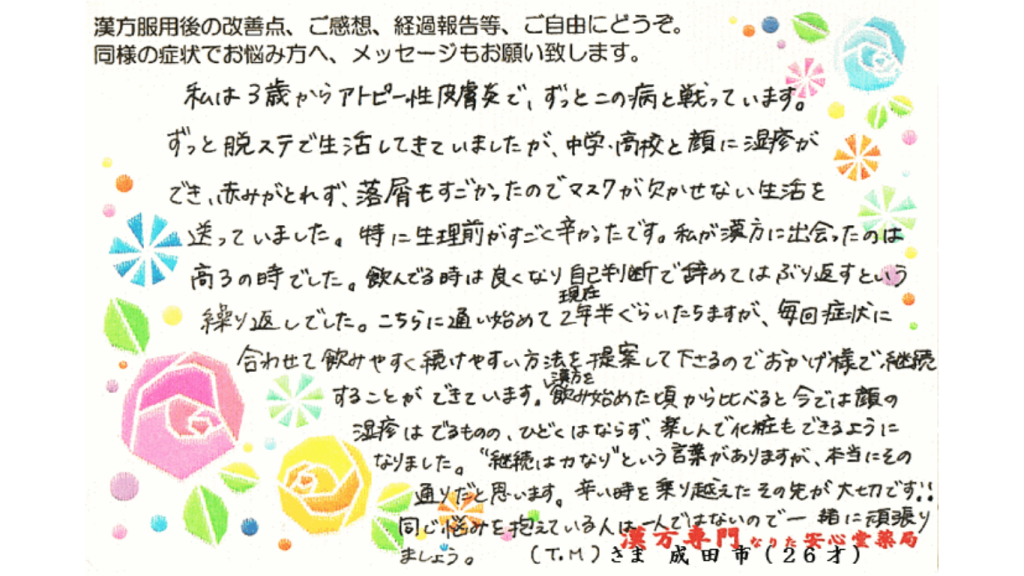 漢方服用後の改善点、ご感想、経過報告等、ご自由にどうぞ。
同様の症状でお悩み方へ、メッセージもお願い致します。
私は3歳からアトピー性皮膚炎で、ずっとこの病と戦っています。
ずっと脱ステで生活してきていましたが、中学・高校と顔に湿疹が
でき、赤みがとれず、落屑もすごかったのでマスクが欠かせない生活を
送っていました。特に生理前がすごく辛かったです。私が漢方に出会ったのは
高3の時でした。飲んでる時は良くなり自己判断で辞めてはぶり返すという
繰り返しでした。こちらに通い始めて現在2年半ぐらいたちますが、毎回症状に
合わせて飲みやすく続けやすい方法を提案して下さるのでおかげ様で継続
することができています。漢方を飲み始めた頃から比べると今では顔の
湿疹はでるものの、ひどくはならず、楽しんで化粧もできるように
なりました。“継続は力なり”という言葉がありますが、本当にその
通りだと思います。辛い時を乗り越えたその先が大切です!!
同じ悩みを抱えている人は一人ではないので一緒に頑張り
ましょう。
漢方専門なりた安心堂薬局
(T.M)さま 成田市(26才)